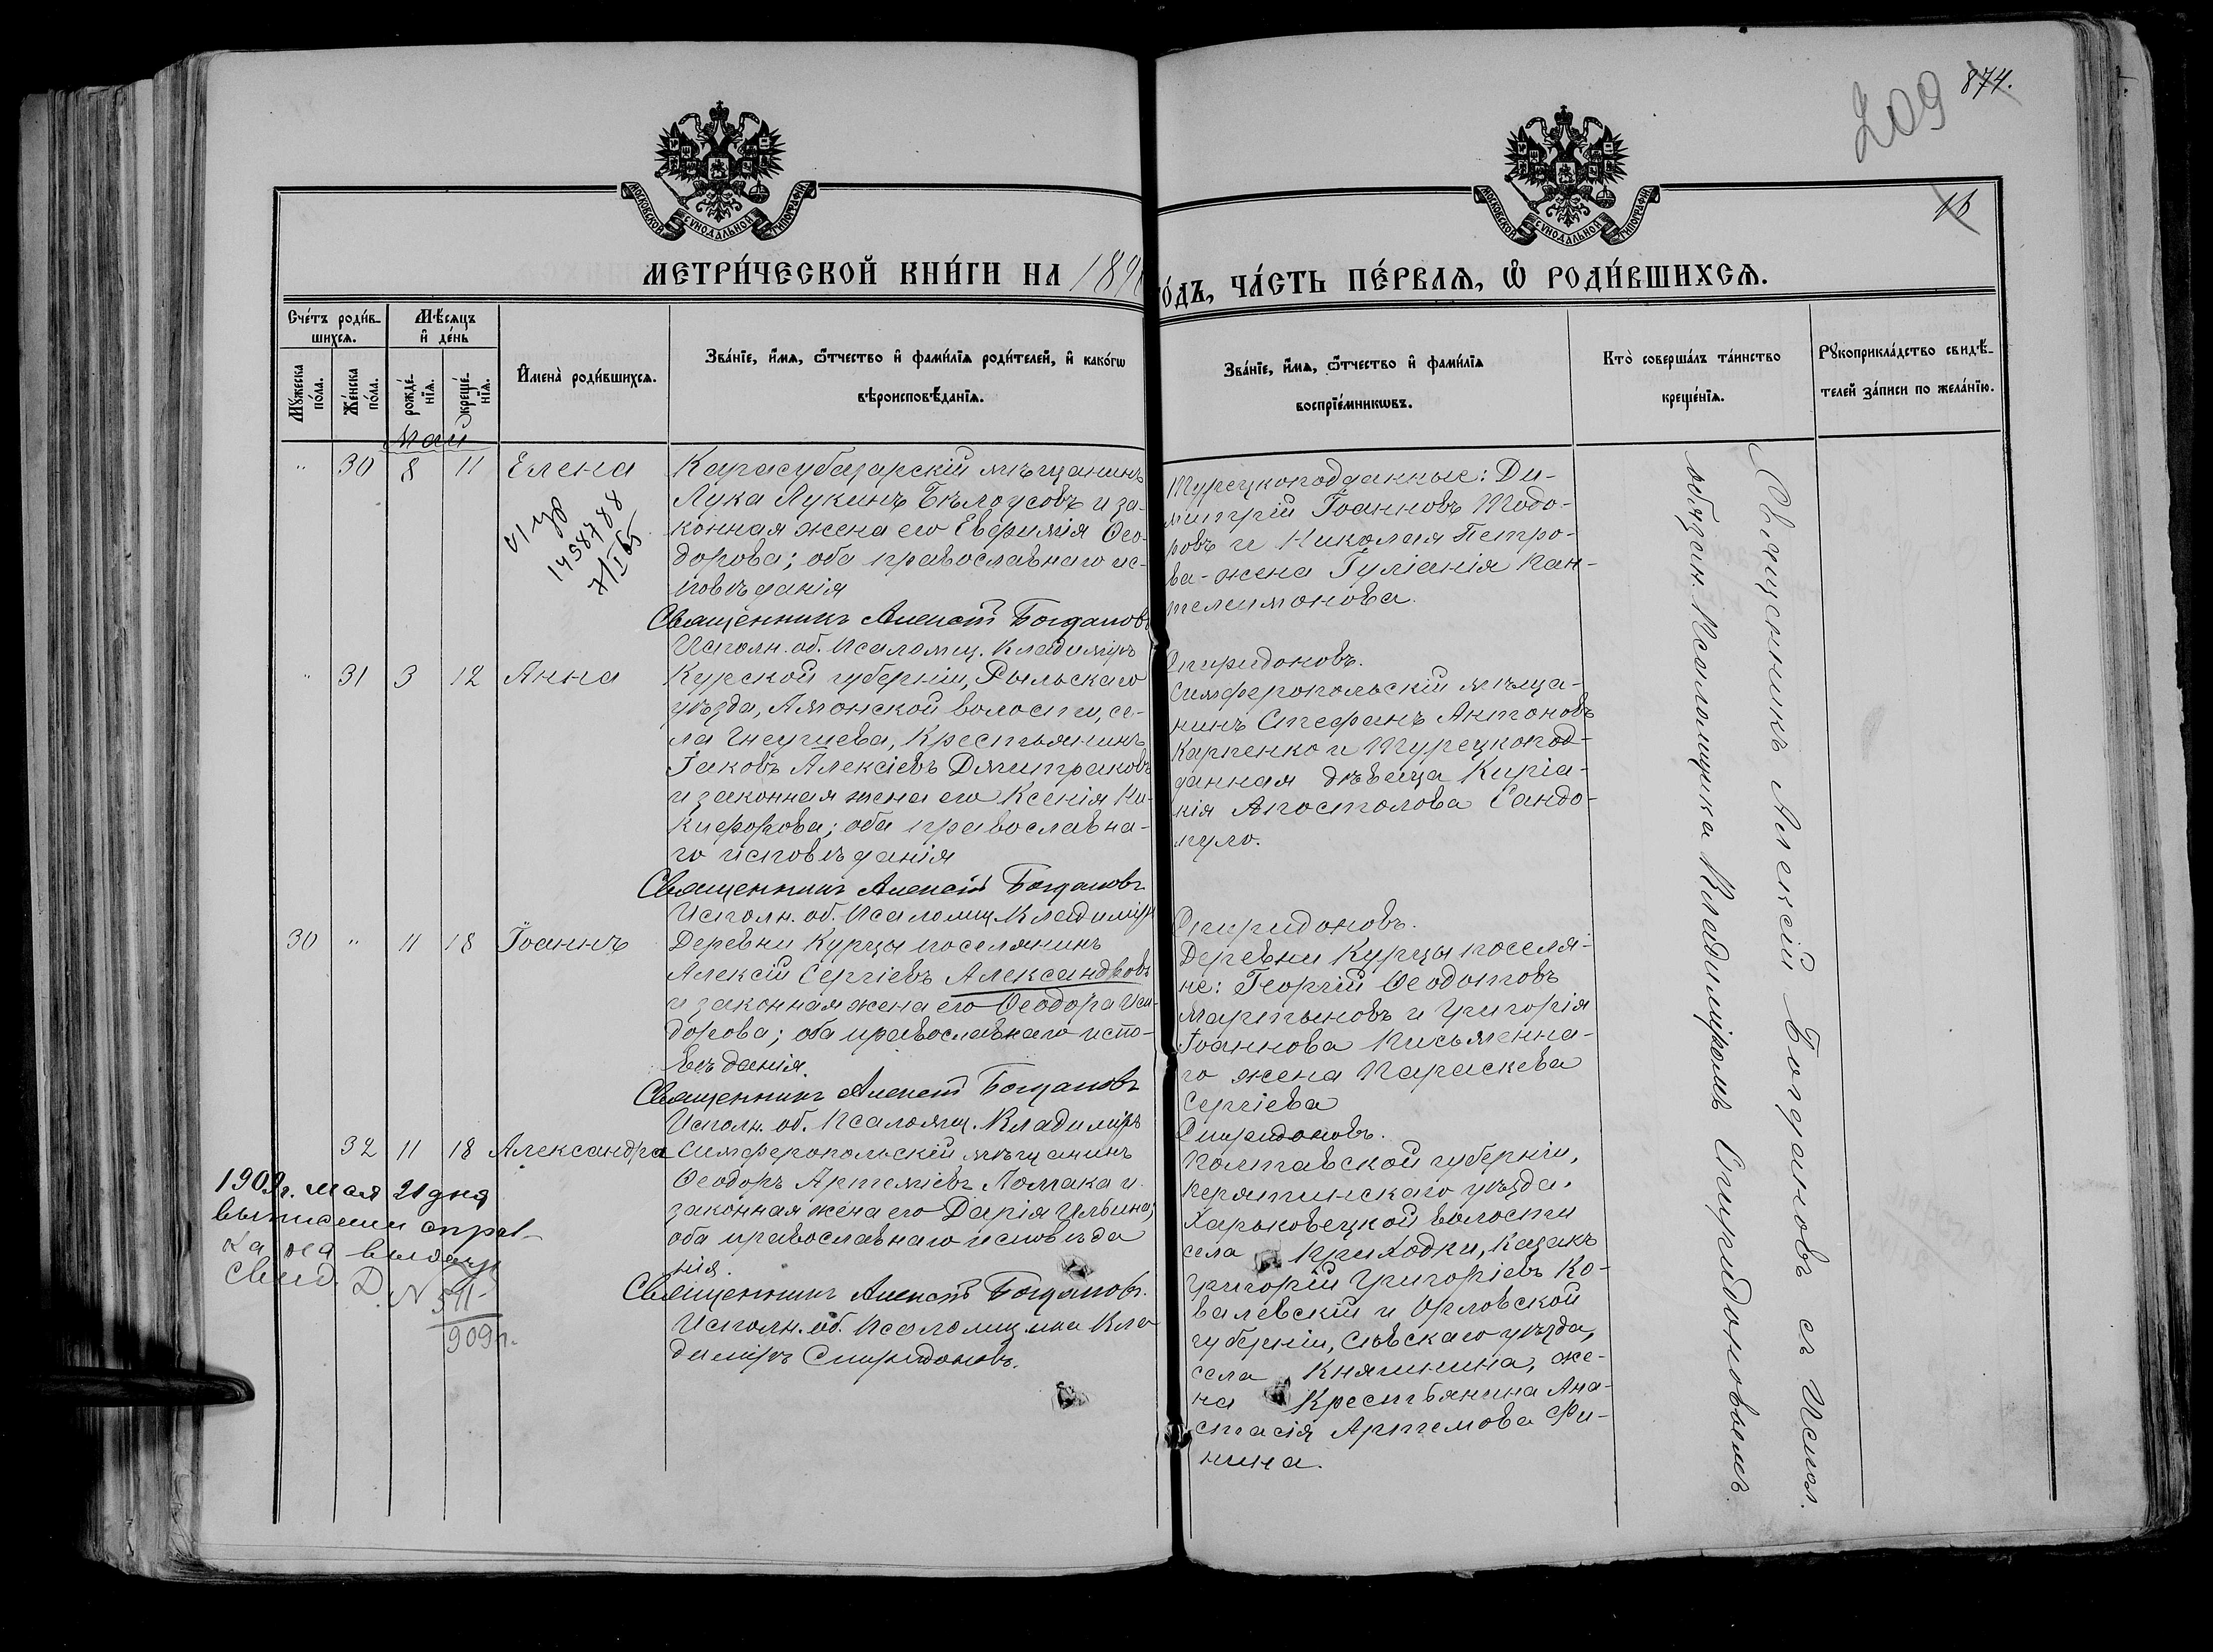 874.
209
16
МОСКОВСКОЙ СѴНОДАЛЬНОЙ ТИПОГРАФІИ
МОСКОВСКОЙ СѴНОДАЛЬНОЙ ТИПОГРАФІИ
МЕТРИ́ЧЕСКОЙ КНИ́ГИ НА 189
ГО́ДЪ, ЧА́СТЬ ПЕ́РВАѦ, Ѡ҆ РОДИ́ВШИХСѦ.
Сче́тъ роди́в-
шихсѧ.
Мꙋ́жеска по́ла.
Же́нска по́ла.
Мѣ́сѧцъ
и҆ де́нь
рожде́-
нїѧ.
креще́-
нїѧ.
И҆мена̀ роди́вшихсѧ.
Зва́нїе, и҆́мѧ, ѻ҆́тчество и҆ фами́лїѧ роди́телей, и҆ како́гѡ
вѣроисповѣ́данїѧ.
Зва́нїе, и҆́мѧ, ѻ҆́тчество и҆ фами́лїѧ
воспрїе́мникѡвъ.
Кто̀ соверша́лъ та́инство
креще́нїѧ.
Рꙋкоприкла́дство свидѣ́-
телей за́писи по жела́нїю.
Май
" 30 8 11 Елена
Карасубазарскій мѣщанинъ
Лука Лукинъ Бѣлоусовъ и за-
конная жена его Евфимія Ѳео-
дорова; оба православнаго ис-
повѣданія
Священникъ Алексій Богдановъ
Исполн. об. Псаломщ. Владиміръ
1458788
Турецкоподданные: Ди-
митрій Іоанновъ Тодо-
ровъ и Николая Петро-
ва - жена Іуліанія Пан-
телеимонова.
Спиридоновъ.
" 31 3 12 Анна
Курской губерніи, Рыльскаго
уѣзда, Амонской волости, се-
ла Гнеушева, крестьянинъ
Іаковъ Алексіевъ Дмитраковъ
и законная жена его Ксенія Ни-
кифорова; оба православна-
го исповѣданія
Священникъ Алексій Богдановъ
Исполн. об. Псаломщ. Владиміръ
Симферопольскій мѣща-
нинъ Стефанъ Антоновъ
Карпенко и Турецкопод-
данная дѣвица Киріа-
кія Апостолова Сандо-
пуло.
Спиридоновъ.
30 " 11 18 Іоаннъ
Деревни Курцы поселянинъ
Алексій Сергіевъ Александровъ
и законная жена его Ѳеодора Иси-
дорова; оба православнаго испо-
вѣданія.
Священникъ Алексій Богдановъ
Исполн. об. Псаломщ. Владиміръ
Деревни Курцы поселя-
не: Георгій Ѳеодотовъ
Мартыновъ и Григорія
Іоаннова Письменна-
го жена Параскева
Сергіева
Спиридоновъ.
32 11 18 Александра
Симферопольскій мѣщанинъ
Ѳеодоръ Артеміевъ Ломака и
законная жена его Дарія Ильина;
оба православнаго исповѣда
нія.
Священникъ Алексій Богдановъ.
Исполн. об. Псаломщика Вла
диміръ Спиридоновъ.
1909 г. мая 21 дня
свид. № 511
909 г.
Полтавской губерніи,
Пирятинскаго уѣзда,
Харьковецкой волости
села Приходки, казакъ
Григорій Григоріевъ Ко-
валевскій и Орловской
губерніи, Сѣвскаго уѣзда,
села Княгинина, же-
на крестьянина Ана-
стасія Артемова Фи-
нина.
Священникъ Алексій Богдановъ съ Испол.
обязан. Псаломщика Владиміромъ Спиридоновымъ.